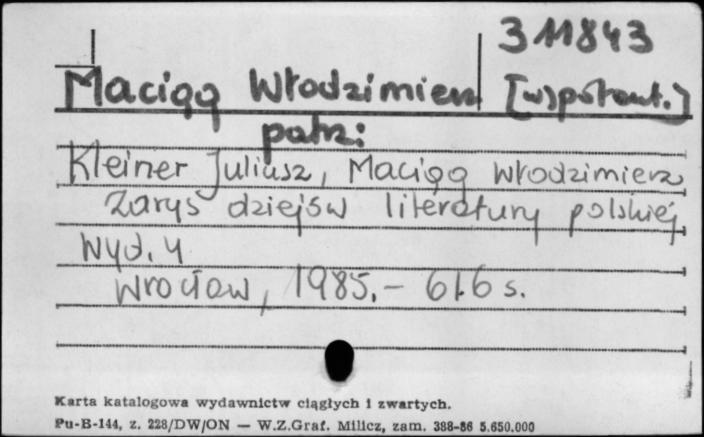 311843
Maciąg Włodzimierz [współaut.]
patrz:
Kleiner Juliusz, Maciąg Włodzimierz
Zarys dziejów literatury polskiej
Wyd. 4
Wrocław, 1985. - 616 s.
Karta katalogowa wydawnictw ciągłych i zwartych.
Pu-B-144, z. 228/DW/ON — W.Z.Graf. Milicz, zam. 388-86 5.650.000